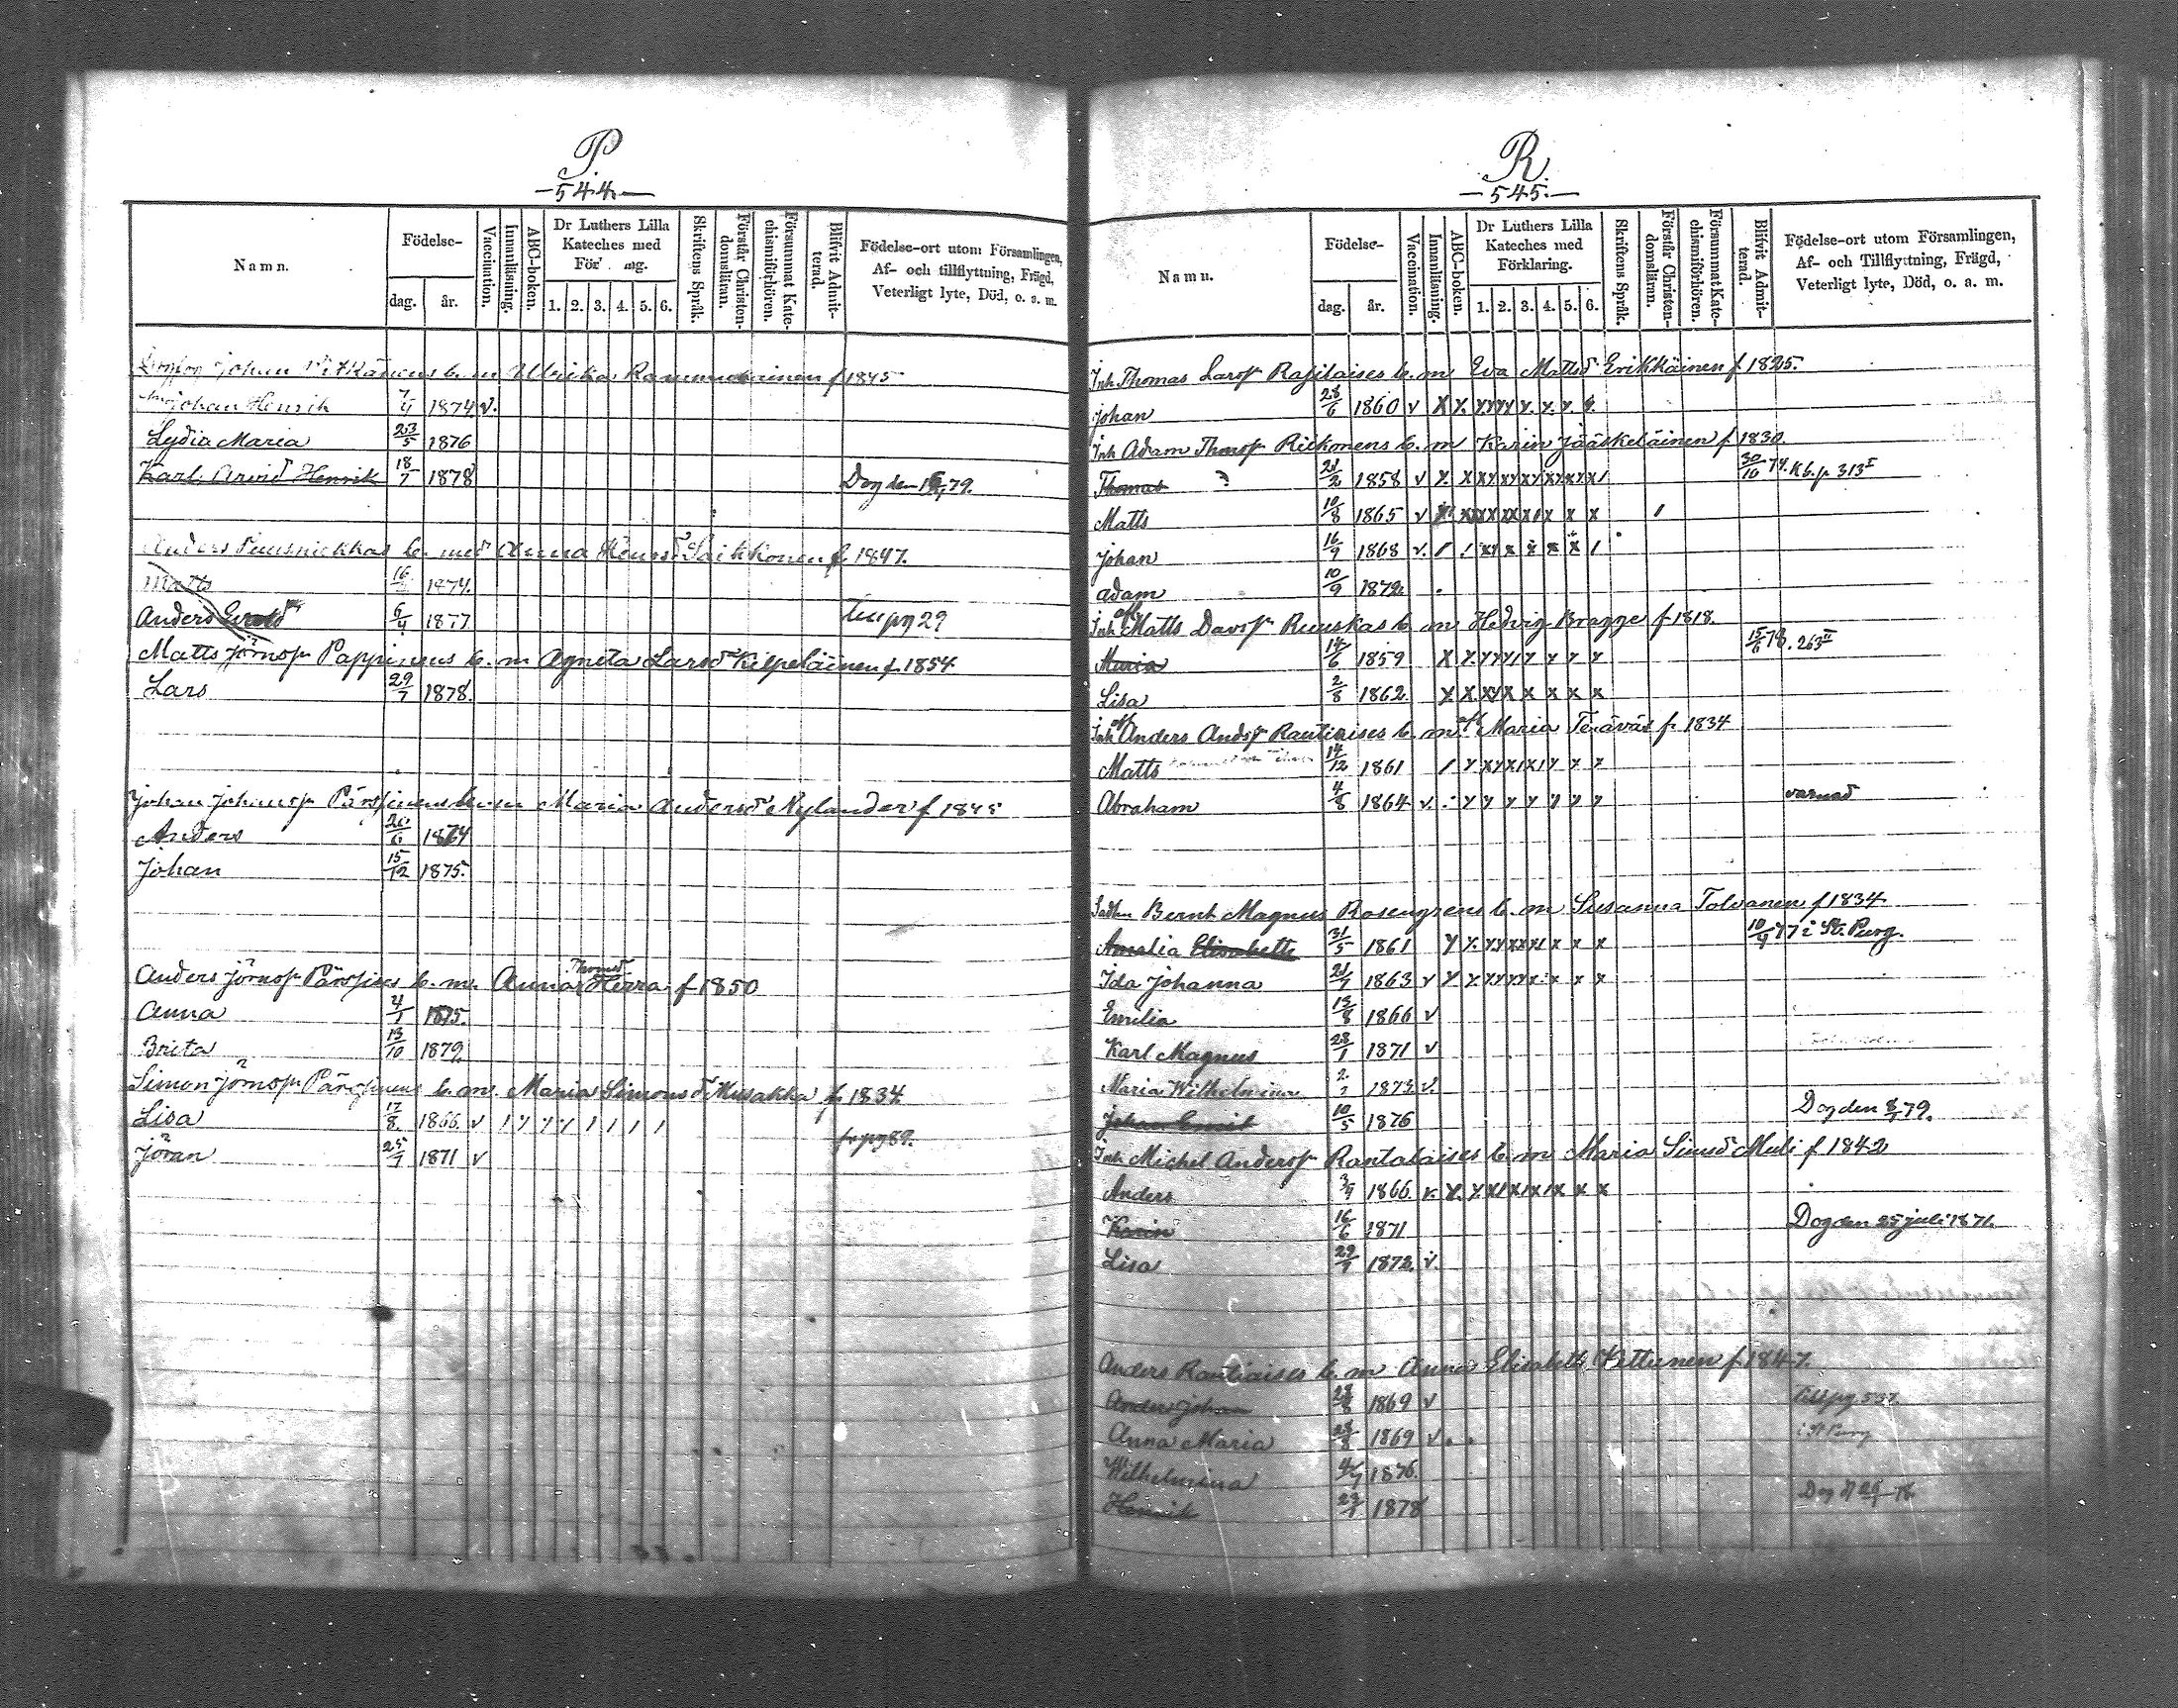 P.
—544.—
Namn.
Födelse-
dag.
år.
Vaccination.
Innanläsning.
ABC-boken.
Dr Luthers Lilla
Kateches med
För ng.
1. 2. 3. 4. 5. 6.
Skriftens Språk.
Förstår Christen-
domsläran.
Försummat Kate-
chismiförhören.
Blifvit Admit-
terad.
Födelse-ort utom Församlingen,
Af- och tillflyttning, Frägd,
Veterligt lyte, Död, o. s. m.
Johan b. m Ulrika f 1845
Johan Henrik 7/4 1874 v.
Lydia Maria 23/5 1876
Karl Arvid Henrik 18/7 1878 Dog den 79.
Anders b. med Anna Henrsd Saikkonen f. 1847.
Matts 16 1874.
Anders 6/4 1877 pg 29
Matts Jörnsp Pappinens b. m Agneta Larsd Kilpeläinen f. 1854
Lars 29/7 1878.
Johan Johansp b. m Maria Andersd Nylander f
Anders 1874
Johan 15/12 1875.
Thomasd
Anders Jörnsp b. m. Anna Herra f 1850
Anna 4/1 1875.
Brita 13/10 1879.
Simon Jörnsp b. m. Maria Simonsd Musakka f 1834
Lisa 17/8 1866. v / y y y / / / /
Jöran 25/7 1871 v pg 89.
R.
—545.—
Namn.
Födelse-
dag.
år.
Vaccination.
Innanläsning.
ABC-boken.
Dr Luthers Lilla
Kateches med
Förklaring.
1. 2. 3. 4. 5. 6.
Skriftens Språk.
Förstår Christen-
domsläran.
Försummat Kate-
chismiförhören.
Blifvit Admit-
terad.
Födelse-ort utom Församlingen,
Af- och Tillflyttning, Frägd,
Veterligt lyte, Död, o. a. m.
Inh Thomas Larsp Rajilaises b. m Eva Mattsd Erikkäinen f 1825.
Johan 28/6 1860 v
Inh Adam Thomsp b. m Karin Jääskeläinen f 1830
Thomas ? 21/2 1858 v 30/10 74. Kb. p. 313 I
Matts 10/8 1865 v
Johan 16/9 1868 v.
Adam 10/9 1872.
Inh afl Matts Davsp Ruuskas b. m Hedvig Bragge f 1818.
Maria 14/6 1859 15/6 78. 263 II
Lisa 2/8 1862.
Inh afl Anders Andsp Rautiaises b. m afl Maria Teräväs f. 1834
Matts 14/12 1861
Abraham 4/8 1864 v. varnad
Bernt Magnus Rosengrens b. m Susanna Tolvanen f 1834
Amalia Elisabette 31/5 1861 10/4 77 i St. Purg.
Ida Johanna 21/7 1863 v
Emilia 13/8 1866 v
Karl Magnus 28/1 1871 v
Maria Wilhelmina 2 1873 v.
Johan 10/5 1876 Dog den 79.
Inh Michel Andersp Rantalaises b. m Maria Simsd f 1842
Anders 3/9 1866 v.
Karin 16/6 1871 Dog den 25 juli 1871.
Lisa 29/7 1872. v.
Anders Rautiaises b. m Anna Elisabeth Kettunen f. 1847.
Anders Johan 28/8 1869 v pg 537
Anna Maria 28/8 1869 v. i St Purg
Wilhelmina 4/7 1876.
Henrik 29 1878 Dog